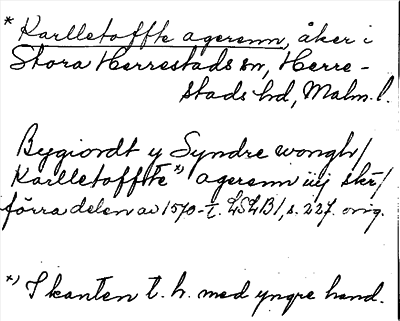 * Karlletoffte agerenn, åker i
Stora Herrestads sn, Herre-
stads hd, Malm. l.
Bygiordt y Syndre wongh/
Karlletoffte *) agerenn iiij skr/
förra delen av 1570-t. LSLB1, s. 227. orig.
*) I kanten t. h. med yngre hand.